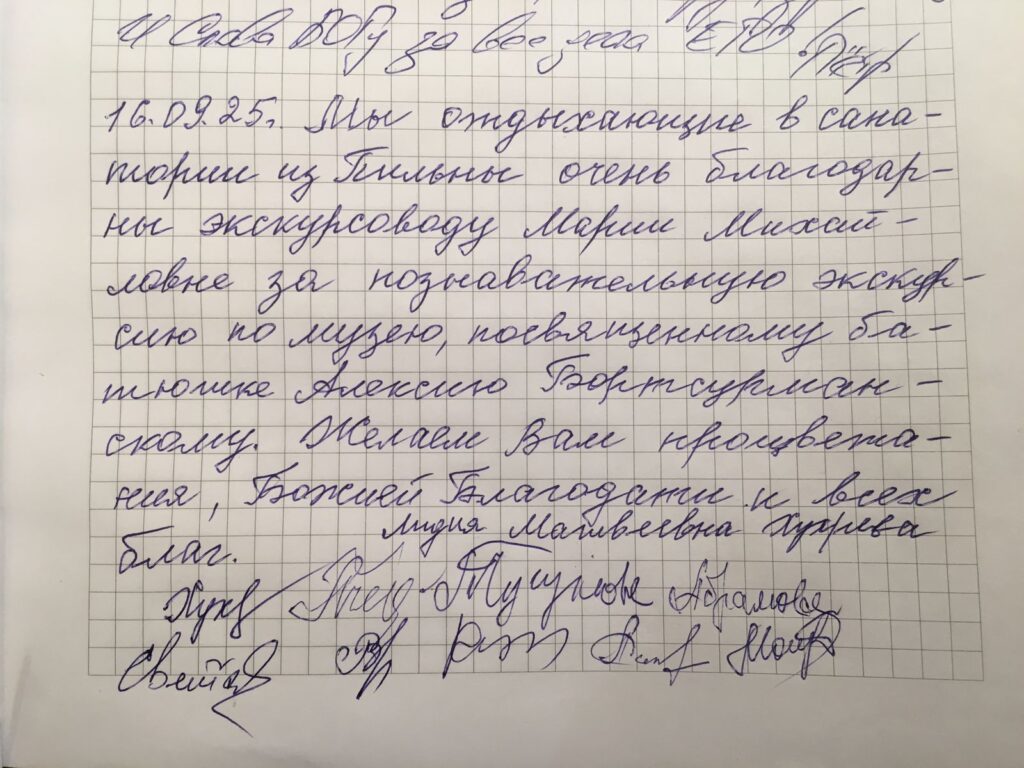 И Слава БОГу за все дела ЕГО!
16.09.25г. Мы отдыхающие в сана-
тории из Пильны очень благодар-
ны экскурсоводу Марии Михай-
ловне за познавательную экскур-
сию по музею, посвященному ба-
тюшке Алексию Бортсурман-
скому. Желаем Вам процвета-
ния, Божией Благодати и всех
благ.
Лидия Матвеевна Хухрева
Абрамова